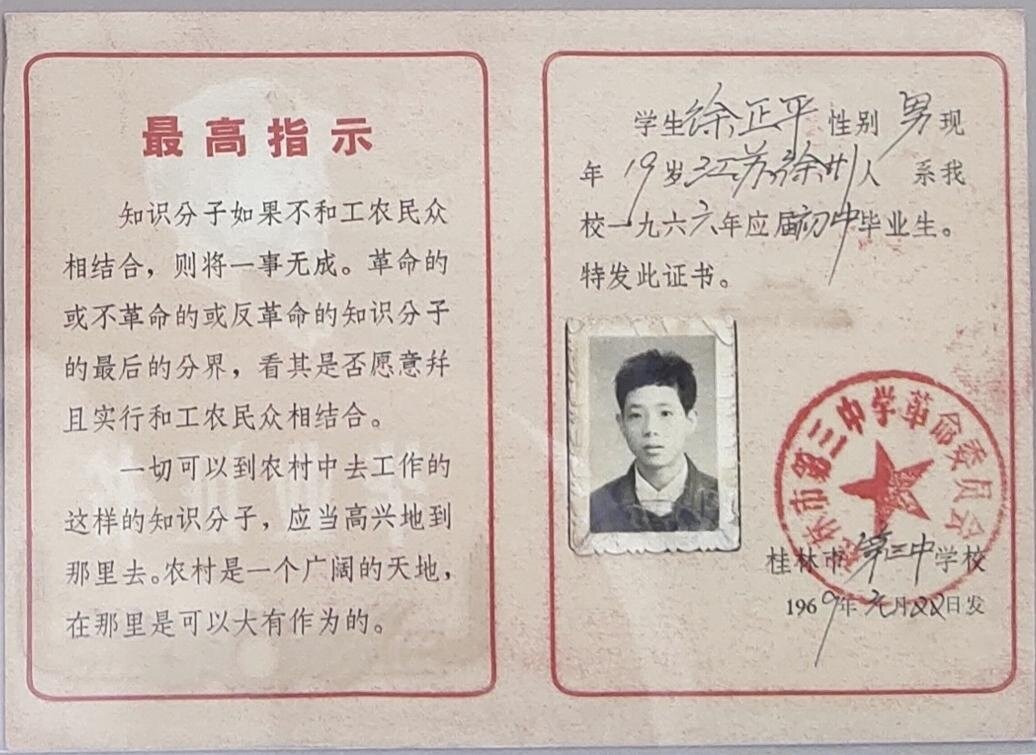 最高指示
知识分子如果不和工农民众
相结合，则将一事无成。革命的
或不革命的或反革命的知识分子
的最后的分界，看其是否愿意并
且实行和工农民众相结合。
一切可以到农村中去工作的
这样的知识分子，应当高兴地到
那里去。农村是一个广阔的天地，
在那里是可以大有作为的。
学生徐正平性别男现
年19岁江苏徐州人 系我
校一九六六年应届初中毕业生。
特发此证书。
桂林市第三中学革命委员会
桂林市第三中学校
1969年元月22日发